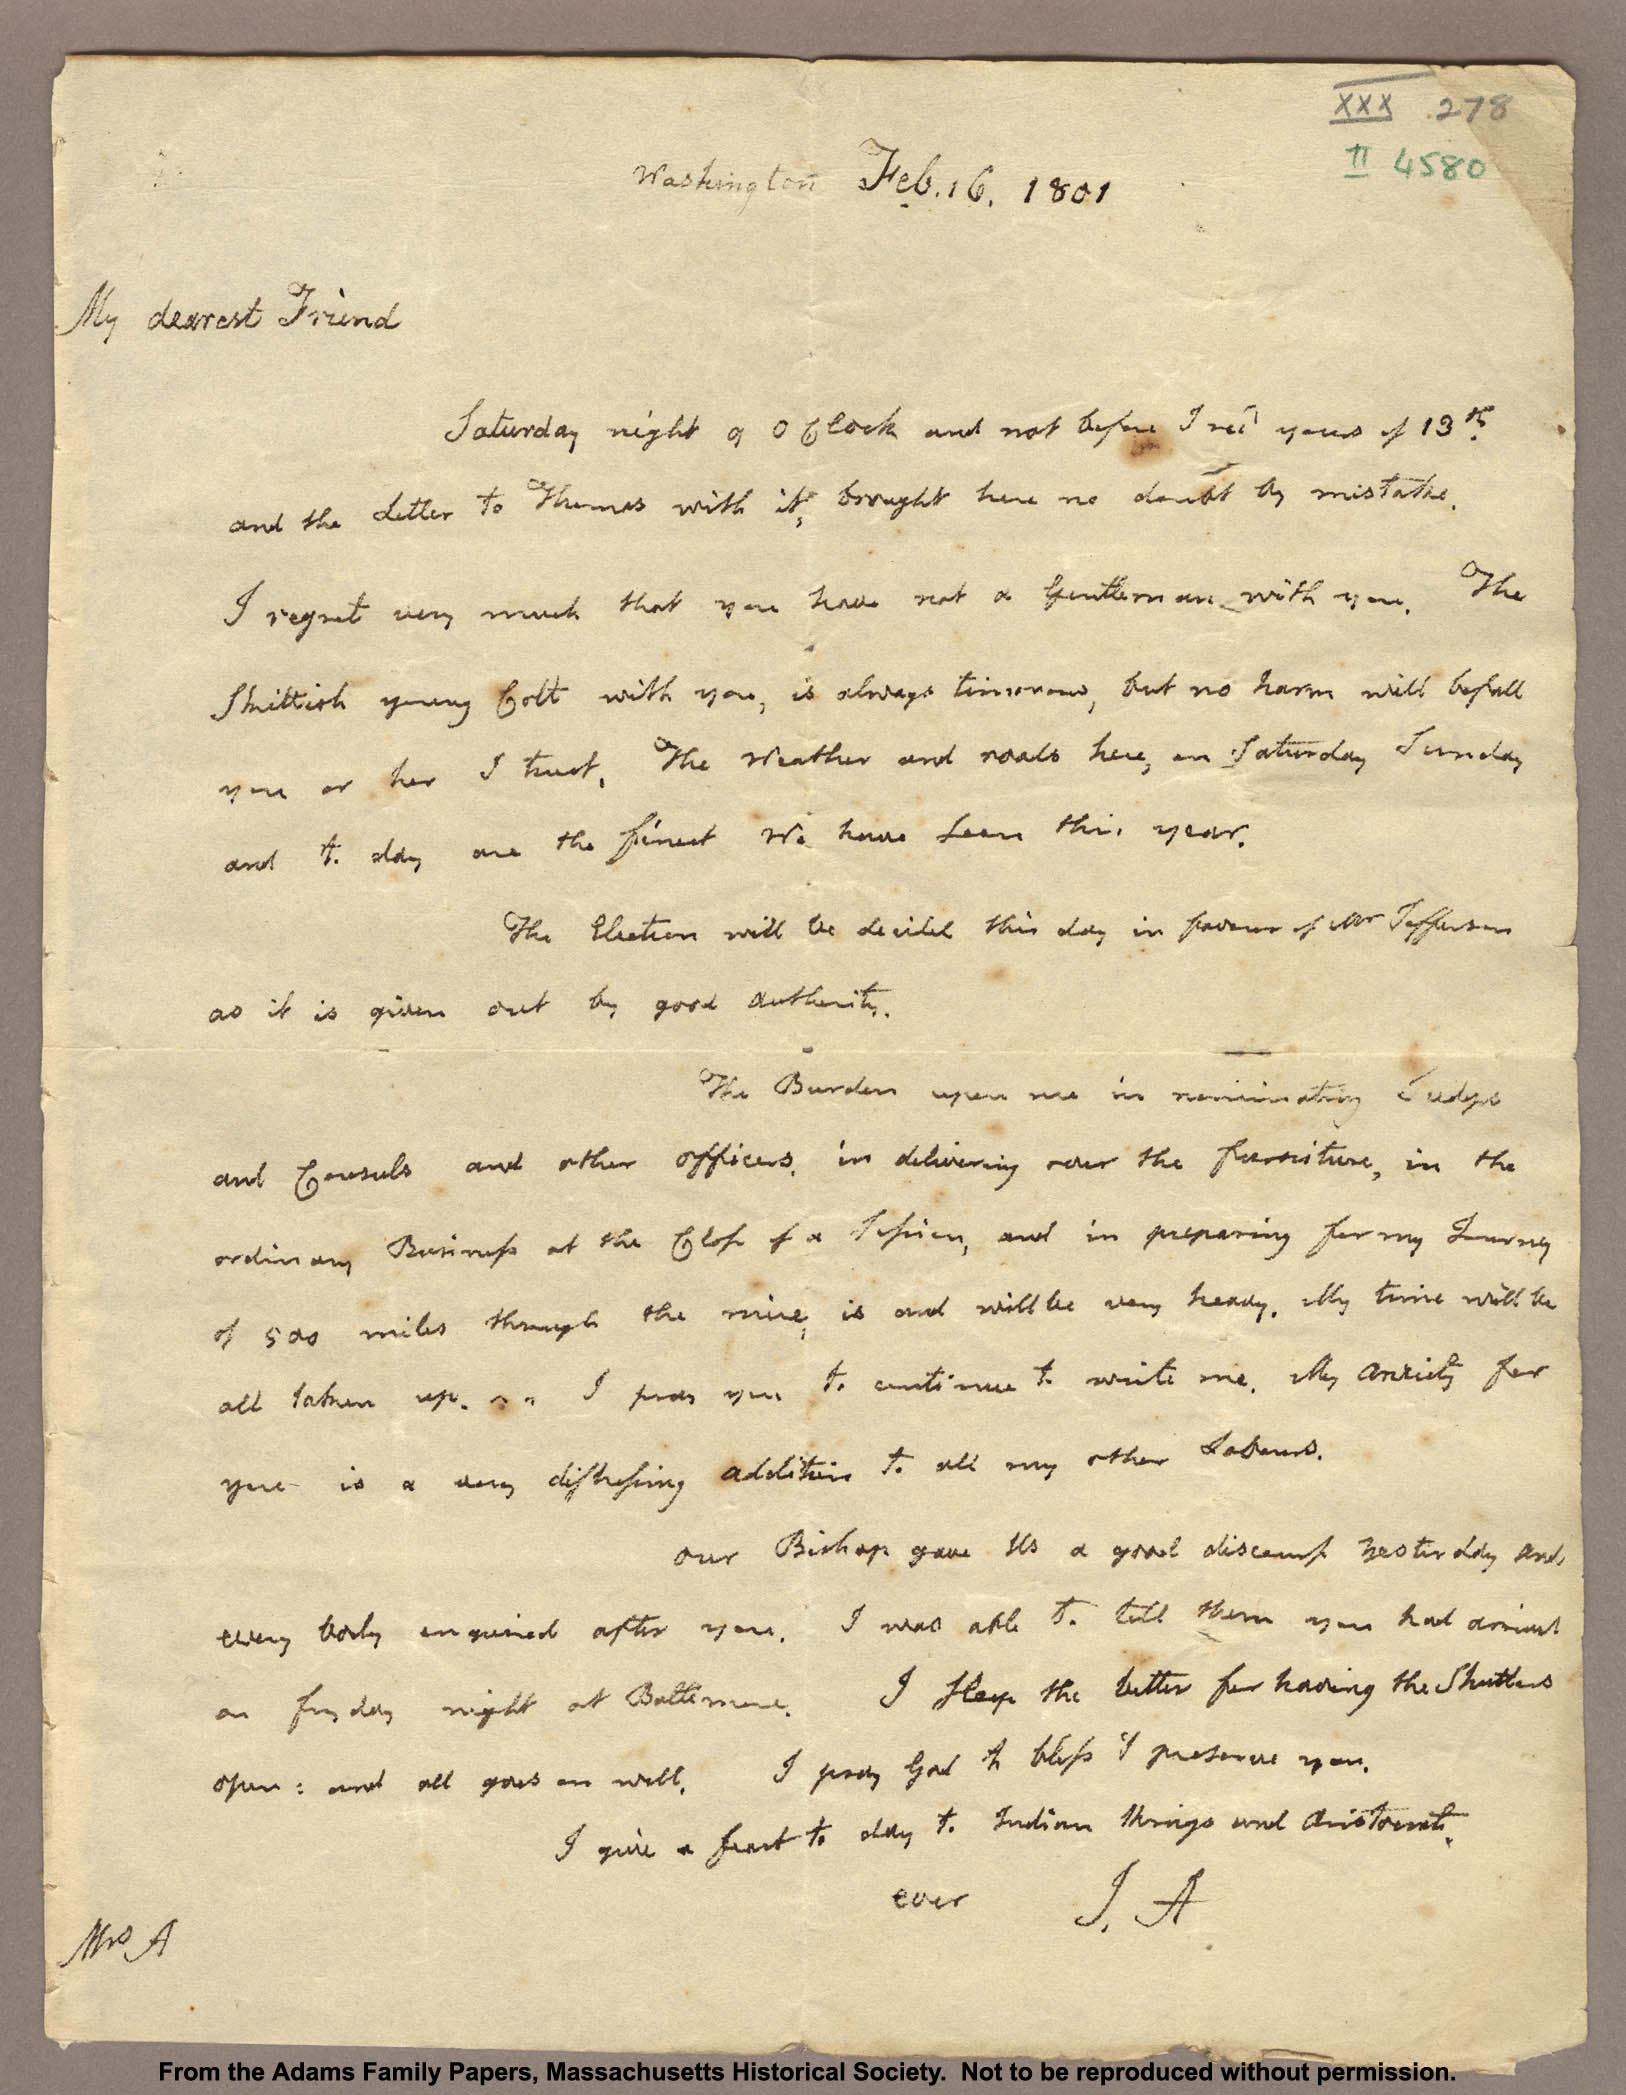 XXX .278
II 4580
Washington Feb. 16. 1801
My dearest Friend
Saturday night 9 O Clock and not before I recd yours of 13th.
and the Letter to Thomas with it, brought here no doubt by mistake.
I regret very much that you have not a Gentleman with you. The
Skittish young Colt with you, is always timorous, but no harm will befall
you or her I trust. The Weather and roads here, on Saturday Sunday
and to day are the finest We have Seen this year.
The Election will be decided this day in favour of Mr Jefferson
as it is given out by good Authority.
The Burden upon me in nominating Judges
and Consuls and other officers, in delivering over the furniture, in the
ordinary Business at the Close of a Session, and in preparing for my Journey
of 500 miles through the mire, is and will be very heavy. My time will be
all taken up. I pray you to continue to write me. My Anxiety for
you is a very distressing Addition to all my other Labours.
our Bishop gave Us a good discourse Yesterday and
every body enquired after you. I was able to tell them you had arrived
on fryday night at Baltimore. I Sleep the better for having the Shutters
open: and all goes on well. I pray God to bless & preserve you.
I give a feast to day to Indian Kings and Aristocrats.
ever J. A
Mrs A
From the Adams Family Papers, Massachusetts Historical Society. Not to be reproduced without permission.